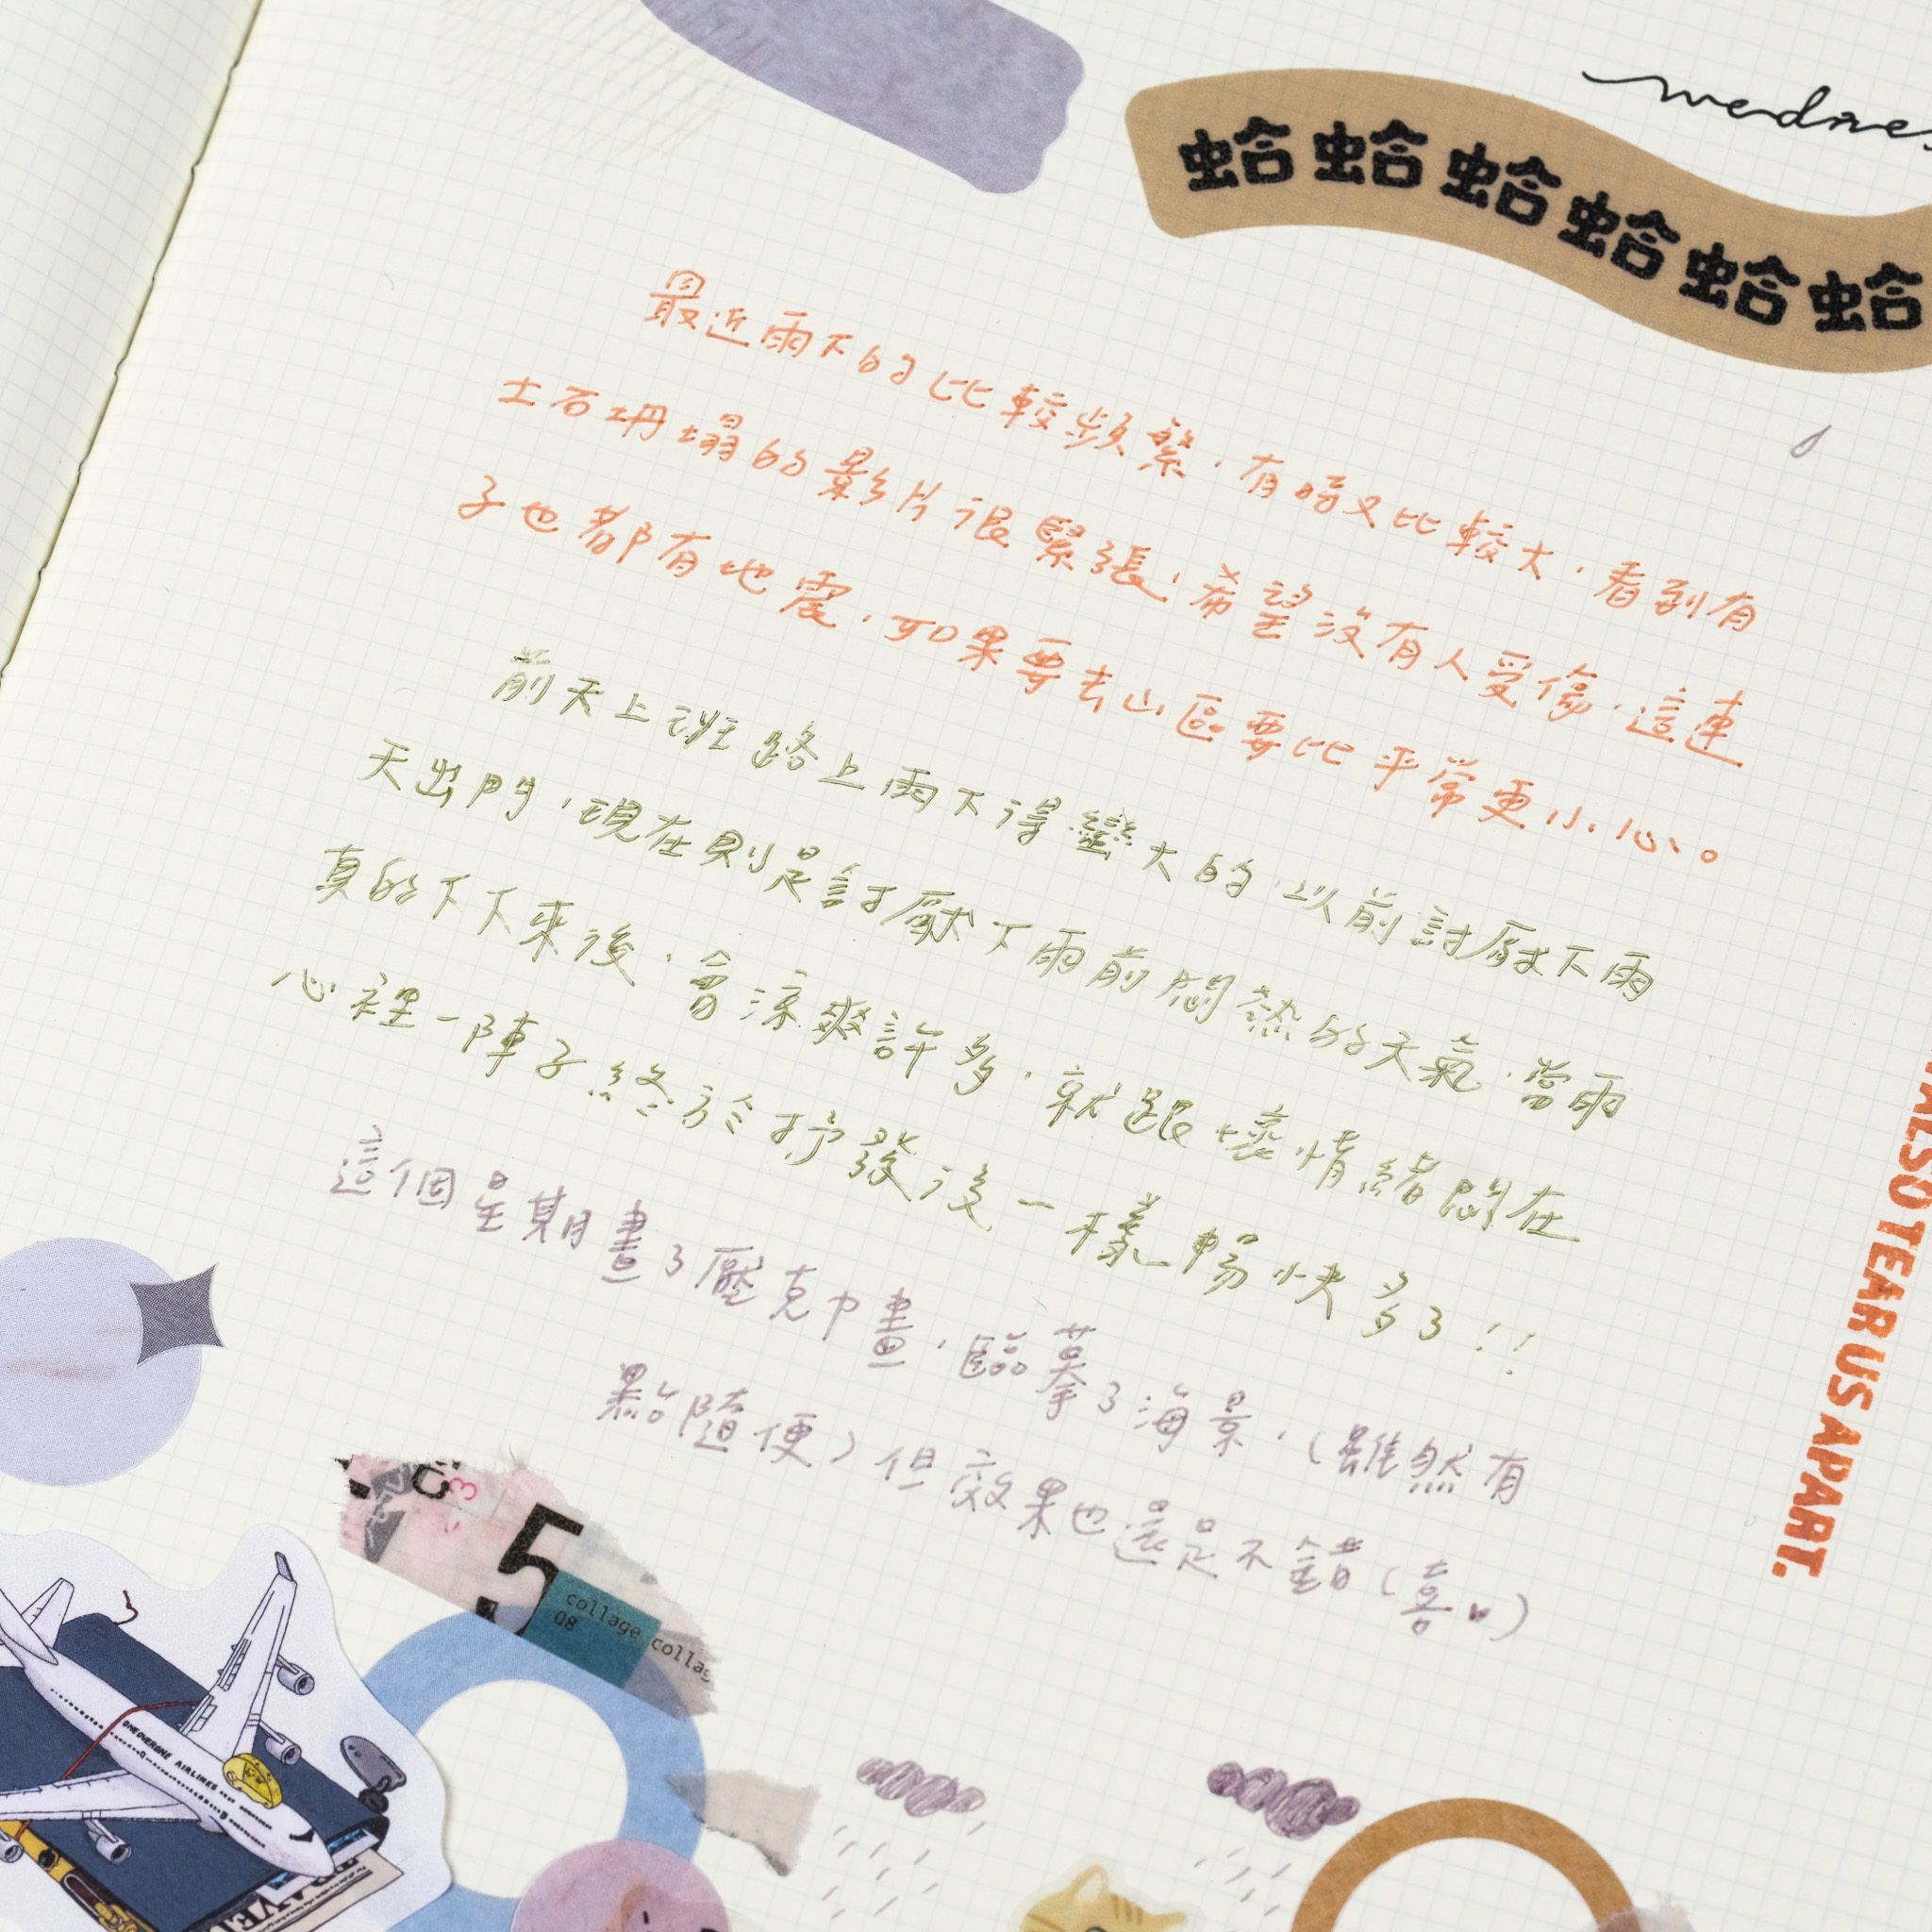 wednes
蛤蛤蛤蛤蛤蛤
最近雨下的比較頻繁，有時又比較大，看到有
土石坍塌的影片很緊張，希望沒有人受傷，這連
子也都有地震，如果要去山區要比平常更小心。
前天上班路上雨下得蠻大的，以前討厭下雨
天出門，現在則是討厭下雨前悶熱的天氣，當雨
真的下下來後，會涼爽許多，就跟壞情緒悶在
心裡一陣子終於抒發後一樣暢快多了!!
這個星期畫了壓克力畫，臨摹了海景，(雖然有
點隨便)但效果也還是不錯(喜口)
ALSO TEAR US APART.
5
3
collage
08
collag
ONEOVERONE AIRLINES